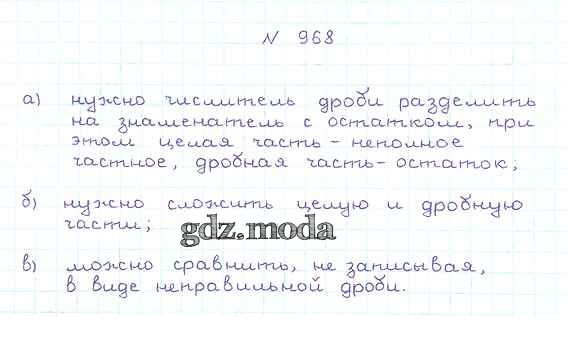 N 968
а) нужно числитель дроби разделить
на знаменатель с остатком, при
этом целая часть - неполное
частное, дробная часть - остаток;
б) нужно сложить целую и дробную
части;
gdz.moda
в) можно сравнить, не записывая,
в виде неправильной дроби.